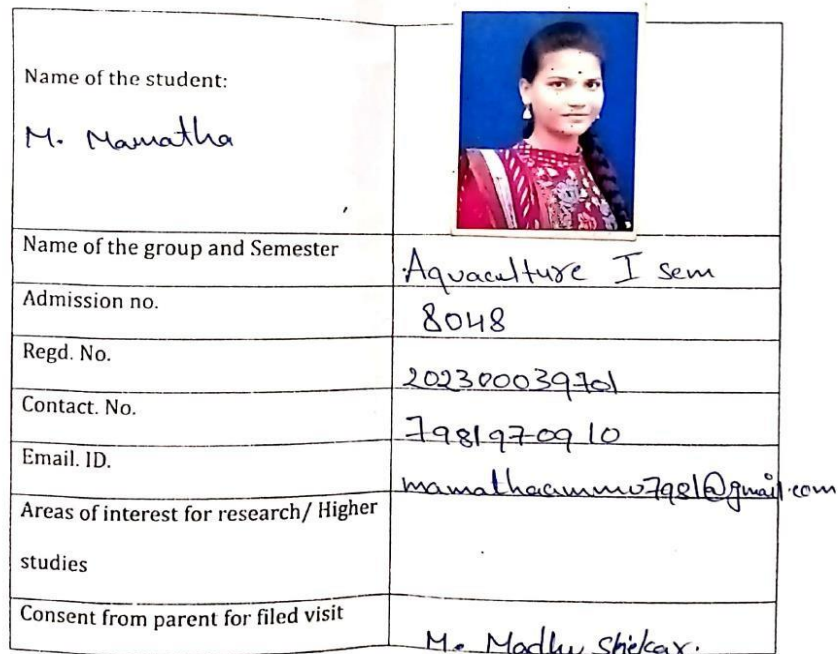 Name of the student:
M. Mamatha
Name of the group and Semester
Aquaculture I sem
Admission no.
8048
Regd. No.
202300039701
Contact. No.
7981970910
Email. ID.
mamathaammu7981@gmail.com
Areas of interest for research/ Higher
studies
Consent from parent for filed visit
M. Madhu Shekar.